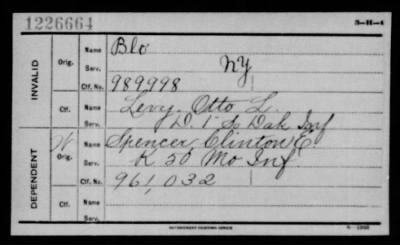 1226664
3-H-4
INVALID
Orig.
Name Blo
Serv. NY
Ctf. No. 989,998
Ctf.
Name Levy, Otto L.
Serv. D. 1 S. Dak Inf
DEPENDENT
W
Orig.
Name Spencer, Clinton E
Serv. K 50 Mo Inf
Ctf. No. 961,032
Ctf.
Name
Serv.